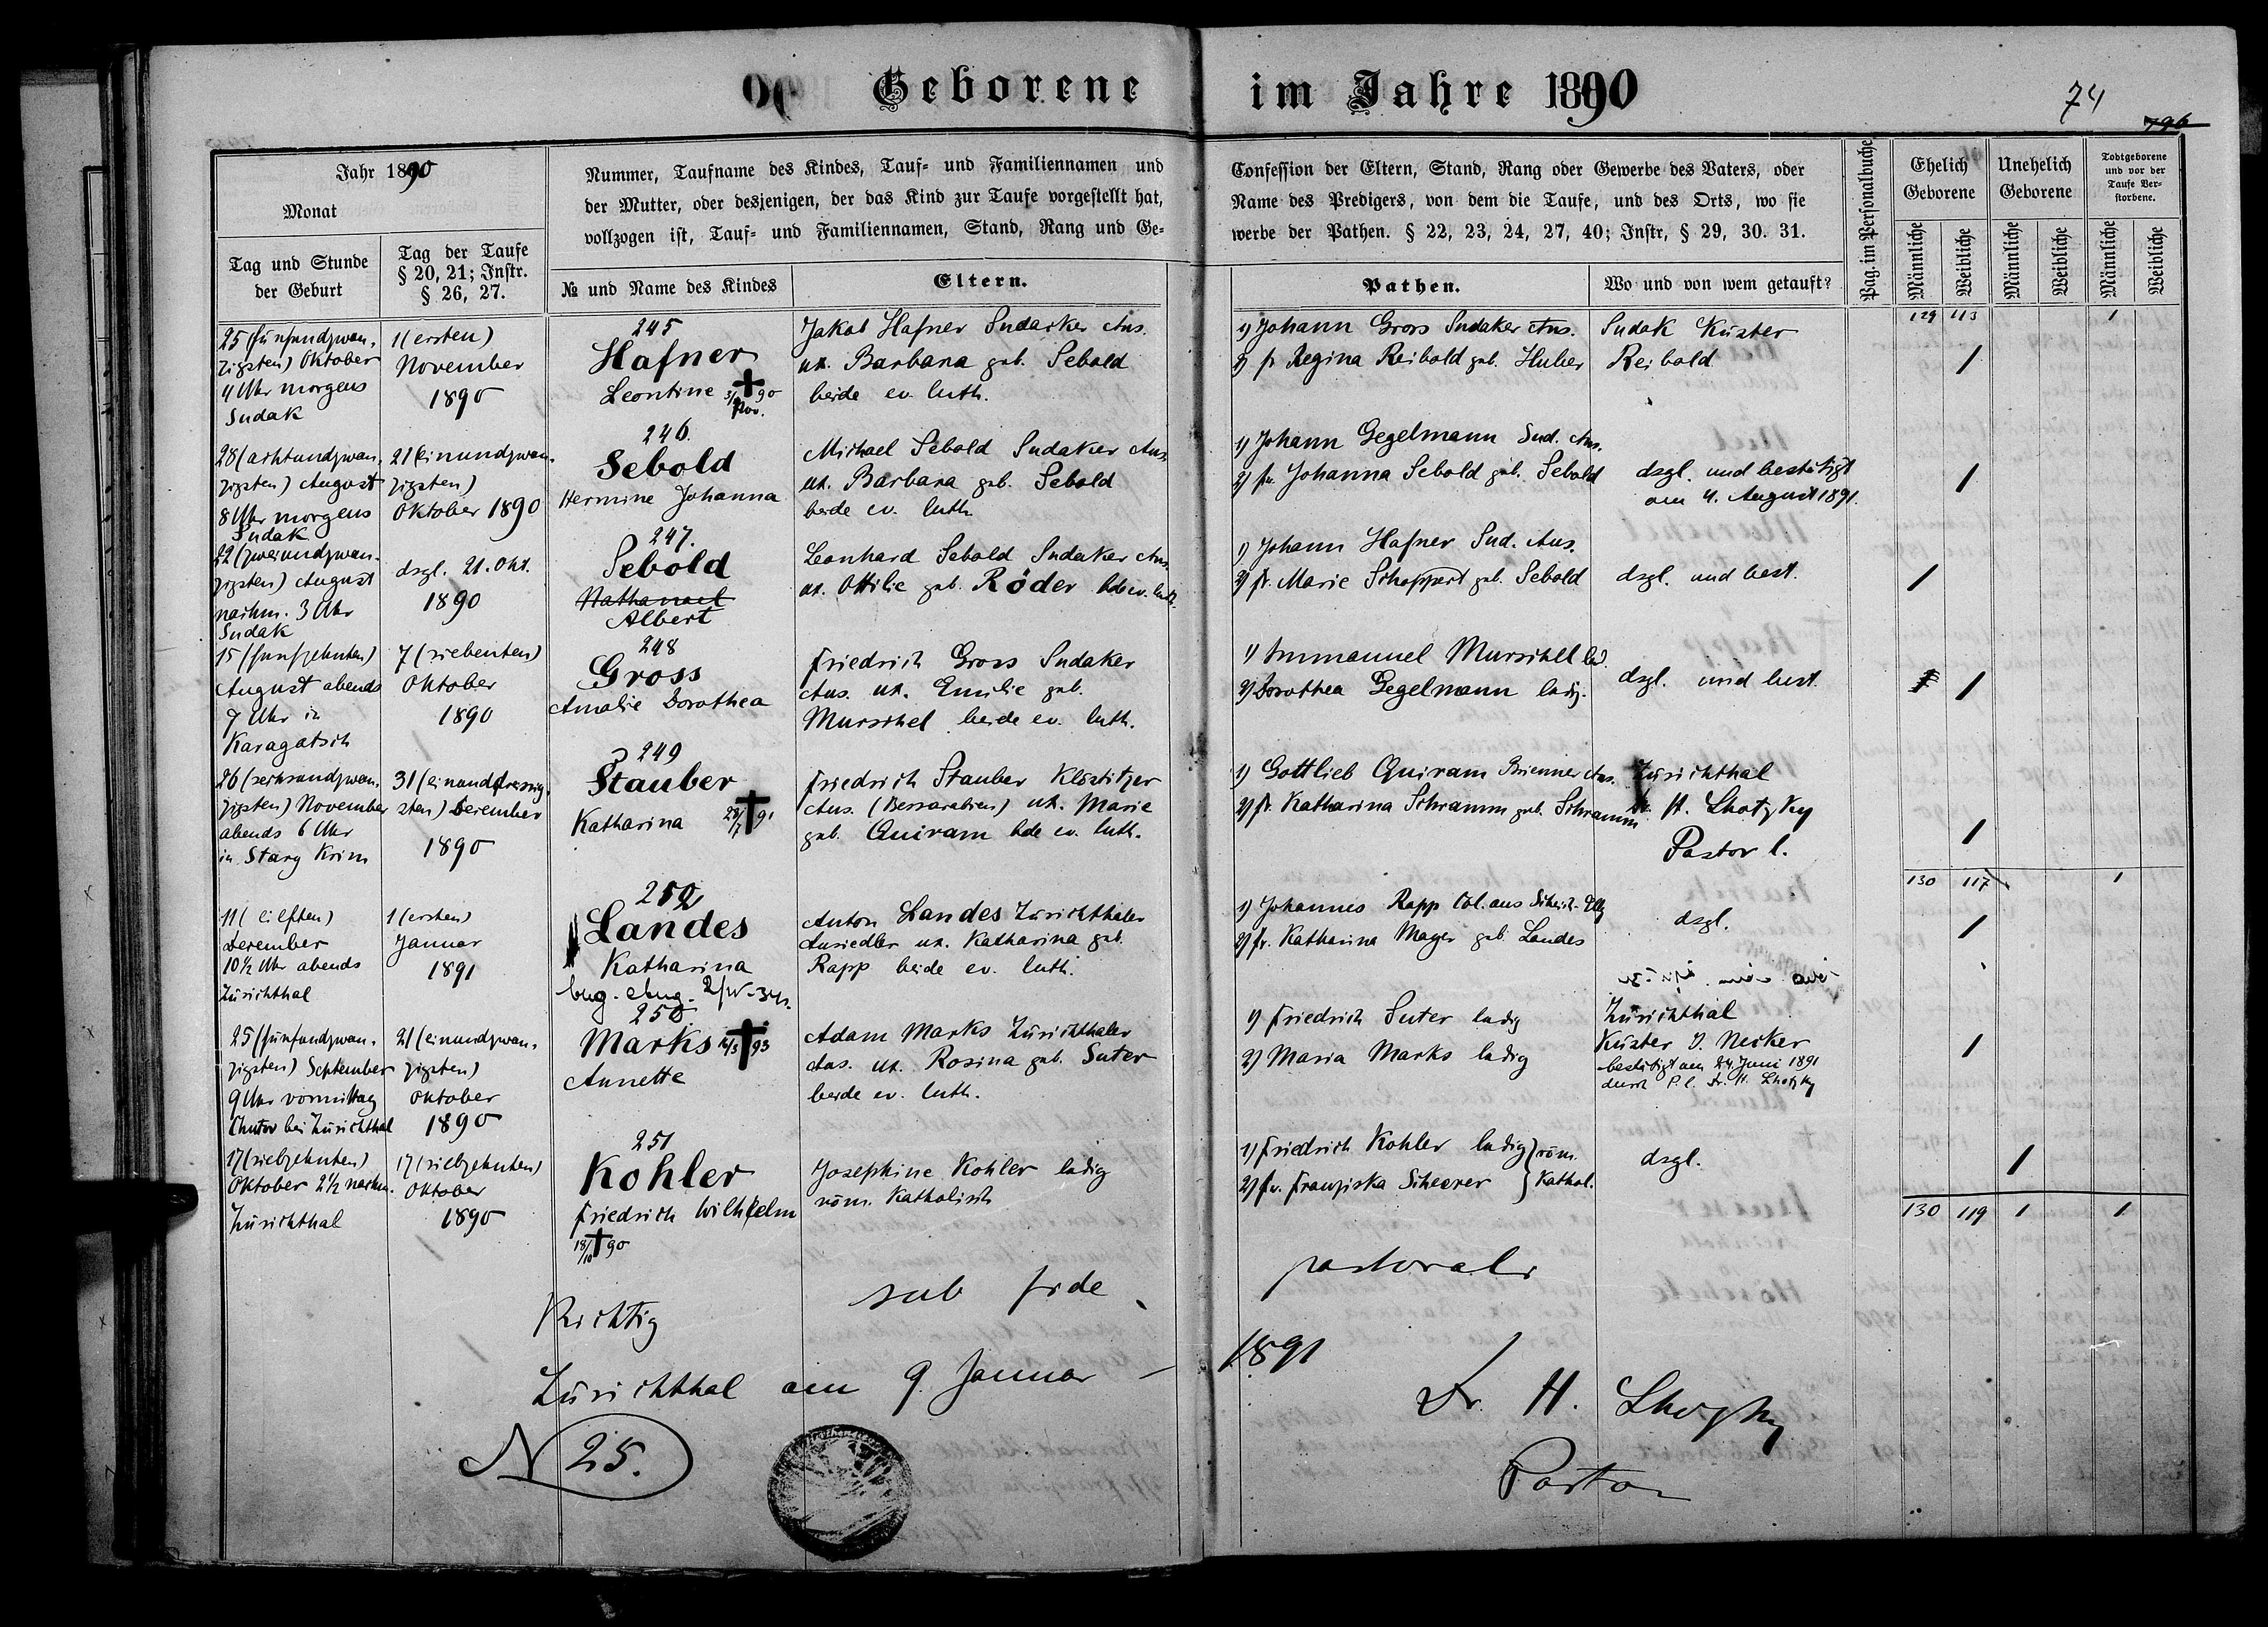 Geborene im Jahre 1890
74
796
Jahr 1890
Monat
Tag und Stunde
der Geburt
Tag der Taufe
§ 20, 21; Instr.
§ 26, 27.
Nummer, Taufname des Kindes, Tauf- und Familiennamen und
der Mutter, oder desjenigen, der das Kind zur Taufe vorgestellt hat,
vollzogen ist, Tauf- und Familiennamen, Stand, Rang und Ge-
№ und Name des Kindes
Eltern.
Confession der Eltern, Stand, Rang oder Gewerbe des Vaters, oder
Name des Predigers, von dem die Taufe, und des Orts, wo sie
werbe der Pathen. § 22, 23, 24, 27, 40; Instr, § 29, 30. 31.
Pathen.
Wo und von wem getauft?
Pag. im Personalbuche
Ehelich
Geborene
Unehelich
Geborene
Todtgeborene
und vor der
Taufe Ver-
storbene.
Männliche
Weibliche
Männliche
Weibliche
Männliche
Weibliche
129 113 1
25 (fünfundzwan-
zigsten) Oktober
4 Uhr morgens
Sudak
1 (ersten)
November
1890
245
Hafner
Leontine 3/Nov. † 90
Jakob Hafner Sudaker Ans.
ux. Barbara geb. Sebold
beide ev. luth.
1) Johann Gross Sudaker Ans.
2) fr Regina Reibold geb. Huber
Sudak Küster
Reibold
1
28 (achtundzwan-
zigsten) August
8 Uhr morgens
Sudak
21 (einundzwan-
zigsten)
Oktober 1890
246.
Sebold
Hermine Johanna
Michael Sebold Sudaker Ans.
ux. Barbara geb. Sebold
beide ev. luth.
1) Johann Gegelmann Sud. Ans.
2) fr. Johanna Sebold geb. Sebold
dsgl. und bestätigt
am 4. August 1891.
1
22 (zweiundzwan-
zigsten) August
nachm. 3 Uhr
Sudak
dsgl. 21. Okt.
1890
247.
Sebold
Nathanael
Albert
Leonhard Sebold Sudaker Ans.
ux. Ottilie geb. Röder bde ev. luth.
1) Johann Hafner Sud. Ans.
2) fr. Marie Schoppert geb. Sebold
dsgl. und best.
1
15 (fünfzehnten)
August abends
7 Uhr in
Karagatsch
7 (siebenten)
Oktober
1890
248
Gross
Amalie Dorothea
Friedrich Gross Sudaker
Ans. ux. Emilie geb.
Murschel beide ev. luth.
1) Immanuel Murschel led.
2) Dorothea Gegelmann ledig.
dsgl. und best.
1
26 (sechsundzwan-
zigsten) November
abends 6 Uhr
in Stary Krim
31 (einunddreissig-
sten) Dezember
1890
249
Stauber
Katharina 28/7 † 91
Friedrich Stauber Klöstitzer
Ans. (Bessarabien) ux. Marie
geb. Quiram bde ev. luth.
1) Gottlieb Quiram Brienner Ans.
2) fr. Katharina Schramm geb. Schramm
Zürichthal
Dr. H. Lhotzky
Pastor l.
1
130 117 1
11 (eilften)
Dezember
10½ Uhr abends
Zürichthal
1 (ersten)
Januar
1891
252
Landes
Katharina
Anton Landes Zürichthaler
Ansiedler ux. Katharina geb.
Rapp beide ev. luth.
1) Johannes Rapp Col. aus Scheich-Elly
2) fr. Katharina Mayer geb. Landes
dsgl.
1
25 (fünfundzwan-
zigsten) September
9 Uhr vormittag
Chutor bei Zürichthal
21 (einundzwan-
zigsten)
Oktober
1890
250
Marks 16/3 † 93
Annette
Adam Marks Zürichthaler
Ans. ux. Rosina geb. Suter
beide ev. luth.
1) Friedrich Suter ledig
2) Maria Marks ledig
Zürichthal
Küster J. Necker
bestätigt am 24. Juni 1891
durch P. l. Dr. H. Lhotzky
1
17 (siebzehnten)
Oktober 2½ nachm.
Zürichthal
17 (siebzehnten)
Oktober
1890
251
Kohler
Friedrich Wilhelm
18/10 † 90
Josephine Kohler ledig
röm. katholisch
1) Friedrich Kohler ledig } röm.
2) fr. Franziska Scheerer } kathol.
dsgl.
1
130 119 1 1
Richtig sub fide pastorali
Zürichthal am 9. Januar 1891
Dr. H. Lhotzky
Pastor
N 25.